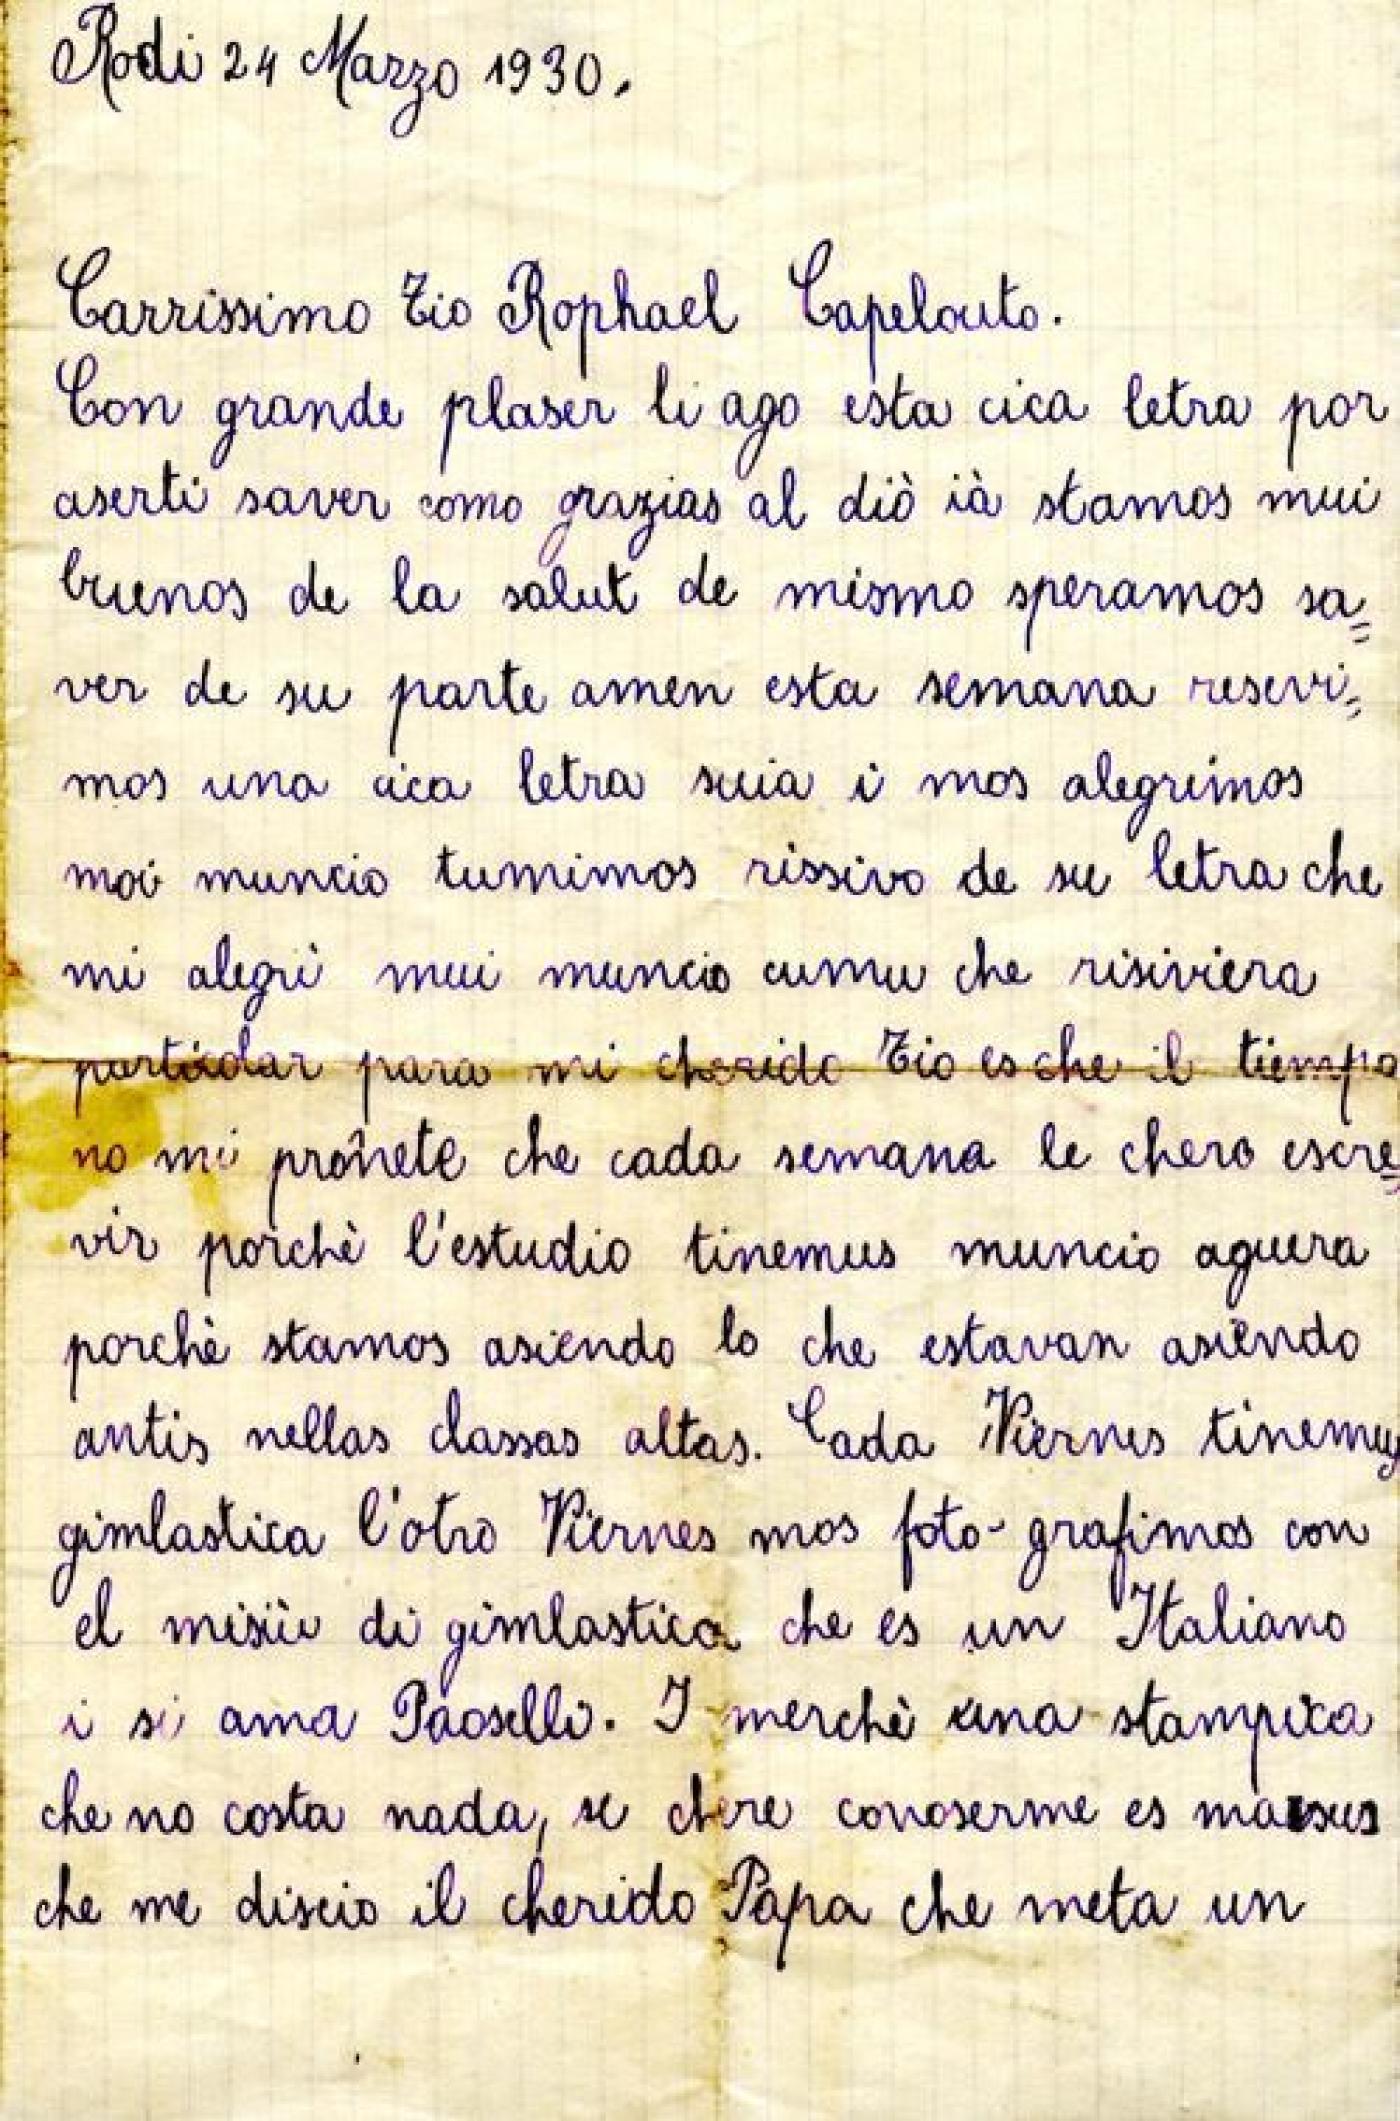 Rodi 24 Marzo 1930.
Carrissimo Tio Rophael Capelouto.
Con grande plaser li ago esta cica letra por
aserti saver como grazias al diò ià stamos mui
buenos de la salut de mismo speramos sa=
ver de su parte amen esta semana resevi=
mos una cica letra suia i mos alegrimos
moi muncio tumimos rissivo de su letra che
mi alegrì mui muncio cumu che risiviera
particolar para mi cherido Tio es che il tiempo
no mi promete che cada semana le chero escre=
vir porchè l'estudio tinemus muncio aguera
porchè stamos asiendo lo che estavan asiendo
antis nellas classas altas. Cada Viernes tinemus
gimlastica l'otro Viernes mos foto-grafimos con
el misiù di gimlastica che es un Italiano
i si ama Paoselli. I merchè una stampica
che no costa nada, se chere conoserme es
che me discio il cherido Papa che meta un